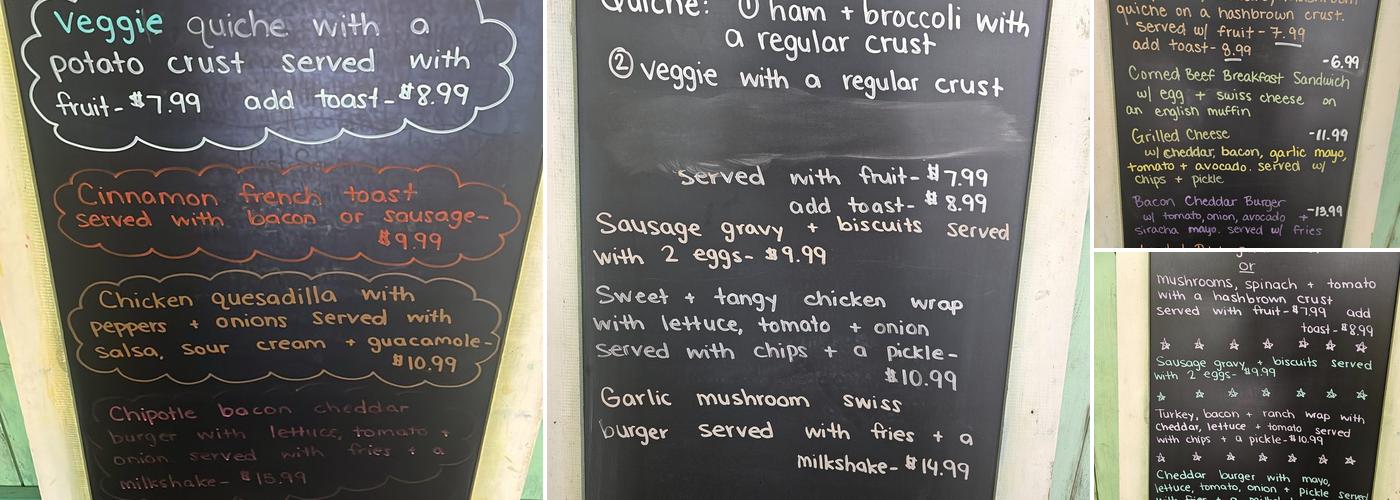 veggie quiche with a
potato crust served with
fruit-$7.99 add toast-$8.99
Cinnamon french toast
served with bacon or sausage-
$9.99
Chicken quesadilla with
peppers + onions served with
salsa, sour cream + guacamole-
$10.99
Chipotle bacon cheddar
burger with lettuce, tomato +
onion served with fries + a
milkshake-$15.99
Quiche: ① ham + broccoli with
a regular crust
② veggie with a regular crust
served with fruit-$7.99
add toast-$8.99
Sausage gravy + biscuits served
with 2 eggs-$9.99
Sweet + tangy chicken wrap
with lettuce, tomato + onion
served with chips + a pickle-
$10.99
Garlic mushroom swiss
burger served with fries + a
milkshake-$14.99
quiche on a hashbrown crust.
served w/ fruit-7.99
add toast-8.99
-6.99
Corned Beef Breakfast Sandwich
w/ egg + swiss cheese on
an english muffin
Grilled Cheese -11.99
w/ cheddar, bacon, garlic mayo,
tomato + avocado. served w/
chips + pickle
Bacon Cheddar Burger -13.99
w/ tomato, onion, avocado +
siracha mayo. served w/ fries
or
mushrooms, spinach + tomato
with a hashbrown crust
served with fruit-$7.99 add
toast-$8.99
Sausage gravy + biscuits served
with 2 eggs-$9.99
Turkey, bacon + ranch wrap with
cheddar, lettuce + tomato served
with chips + a pickle-$10.99
Cheddar burger with mayo,
lettuce, tomato, onion + pickle served